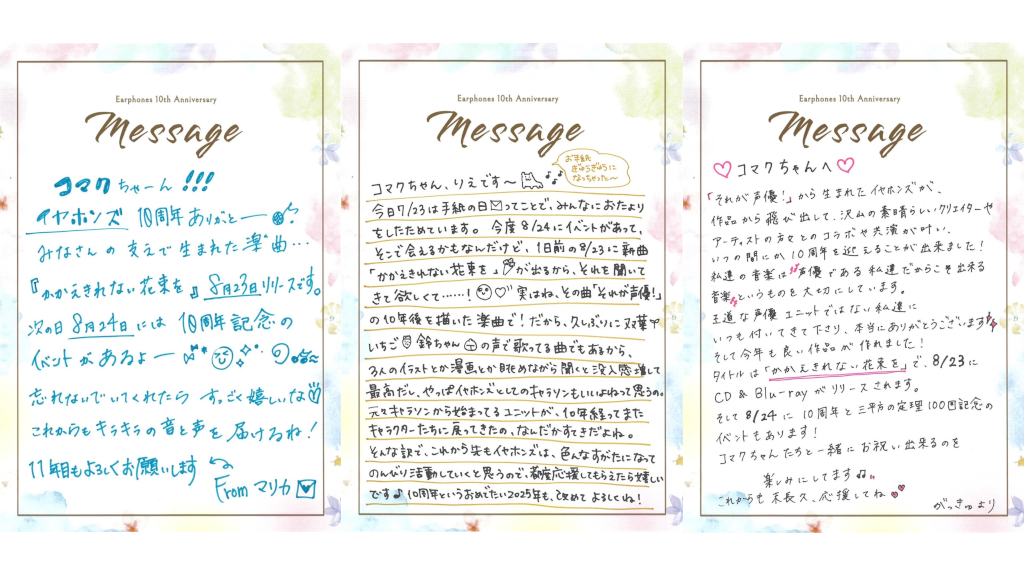 Earphones 10th Anniversary
Message
コマクちゃーん!!!
イヤホンズ 10周年ありがとー
みなさんの支えで生まれた楽曲…
『かかえきれない花束を』8月23日リリースです。
次の日8月24日には 10周年記念の
イベントがあるよー
忘れないでいてくれたら すっごく嬉しいな
これからもキラキラの音と声を届けるね!
11年目もよろしくお願いします
From マリカ
Earphones 10th Anniversary
Message
お手紙
ぎゅうぎゅうに
なっちゃった〜
コマクちゃん、りえです〜
今日7/23は手紙の日ってことで、みんなにおたより
をしたためています。今度8/24にイベントがあって、
そこで会えるかもなんだけど、1日前の8/23に新曲
「かかえきれない花束を」が出るから、それを聞いて
きて欲しくて……!実はね、その曲「それが声優!」
の10年後を描いた楽曲で!だから、久しぶりに双葉
いちご鈴ちゃんの声で歌ってる曲でもあるから、
3人のイラストとか漫画とか眺めながら聞くと没入感増して
最高だし、やっぱイヤホンズとしてのキャラソンもいいよねって思うの。
元々キャラソンから始まってるユニットが、10年経ってまた
キャラクターたちに戻ってきたの、なんだかすてきだよね。
そんな訳で、これから先もイヤホンズは、色んなすがたになって
のんびり活動していくと思うので、都度応援してもらえたら嬉しい
です♪10周年というおめでたい2025年も、改めてよろしくね!
Earphones 10th Anniversary
Message
コマクちゃんへ
「それが声優!」から生まれたイヤホンズが、
作品から飛び出して、沢山の素晴らしいクリエイターや
アーティストの方々とのコラボや共演が叶い、
いつの間にか10周年を迎えることが出来ました!
私達の音楽は声優である私達だからこそ出来る
音楽というものを大切にしています。
王道な声優ユニットではない私達に
いつも付いてきて下さり、本当にありがとうございます
そして今年も良い作品が作れました!
タイトルは「かかえきれない花束を」で、8/23に
CD & Blu-rayがリリースされます。
そして8/24に10周年と三平方の定理100回記念の
イベントもあります!
コマクちゃんたちと一緒にお祝い出来るのを
楽しみにしてます
これからも末長く、応援してね
がっきゅより